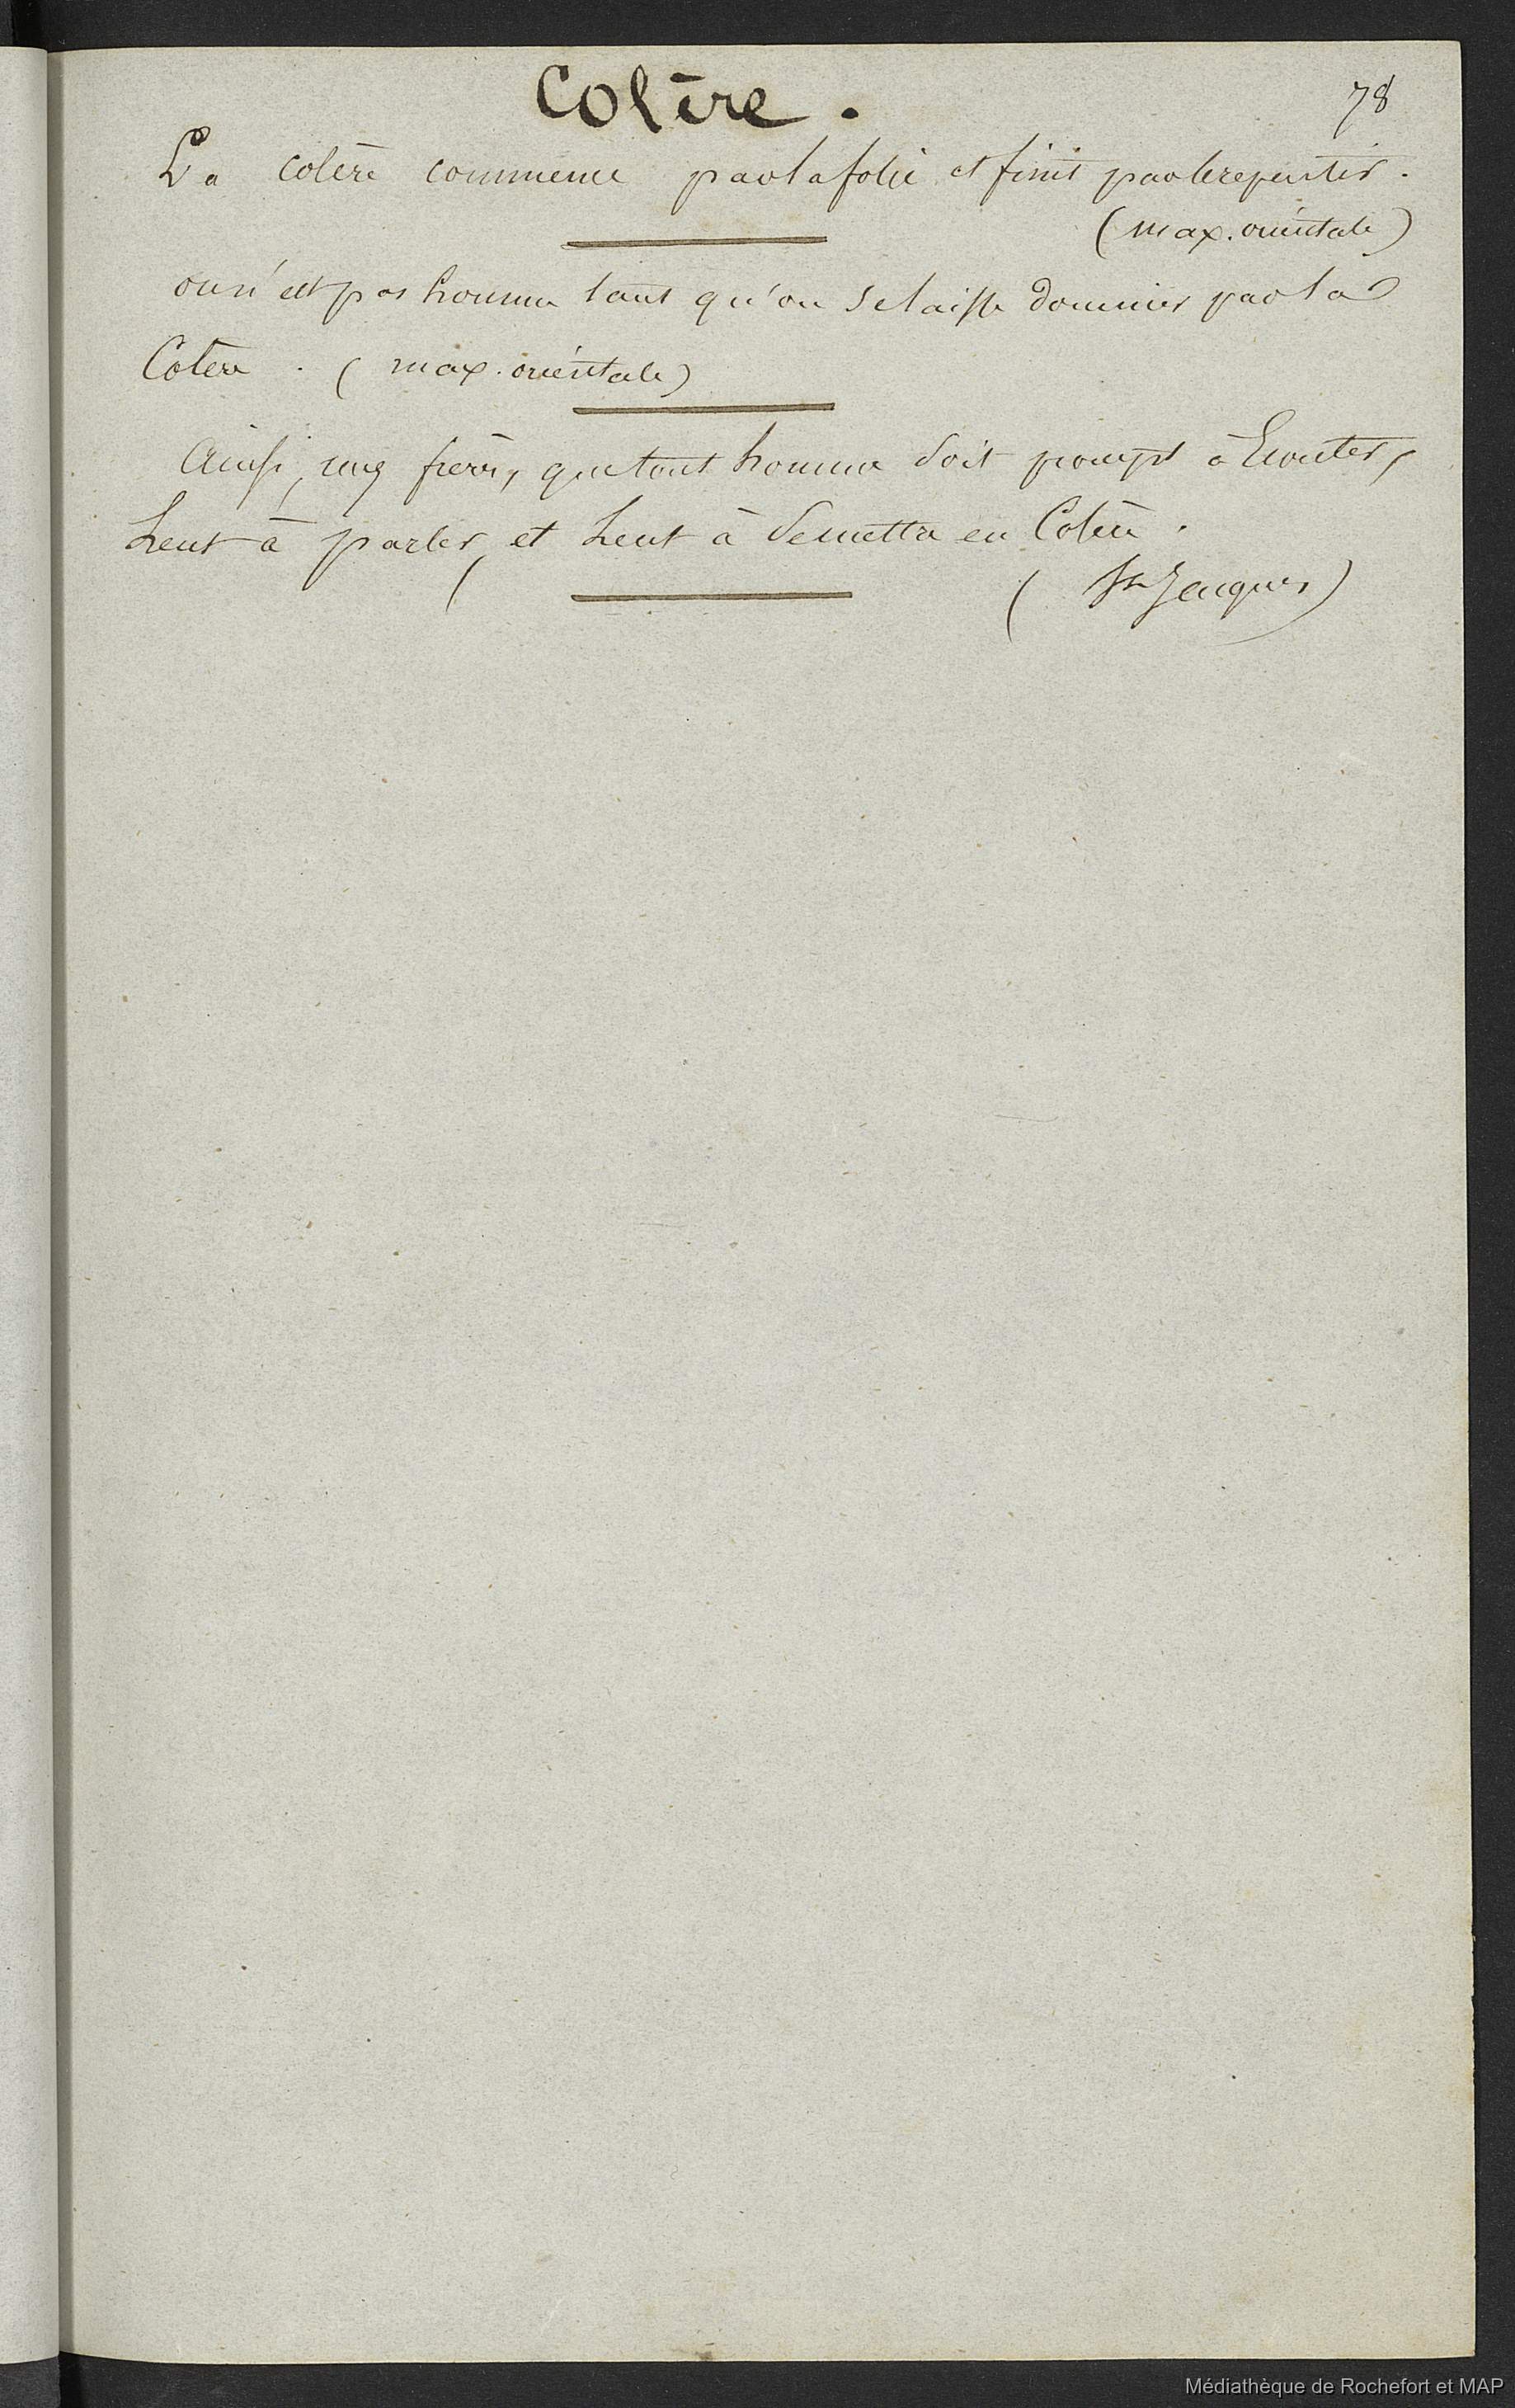 Colère.
78
La colère commence par la folie et finit par le repentir.
(max. orientale)
on n'est pas homme tant qu'on se laisse dominer par la
Colère. (max. orientale)
Ainsi, mes frères, que tout homme soit prompt à Ecouter,
Lent à parler, et Lent à se mettre en Colère.
(St Jacques)
Médiathèque de Rochefort et MAP